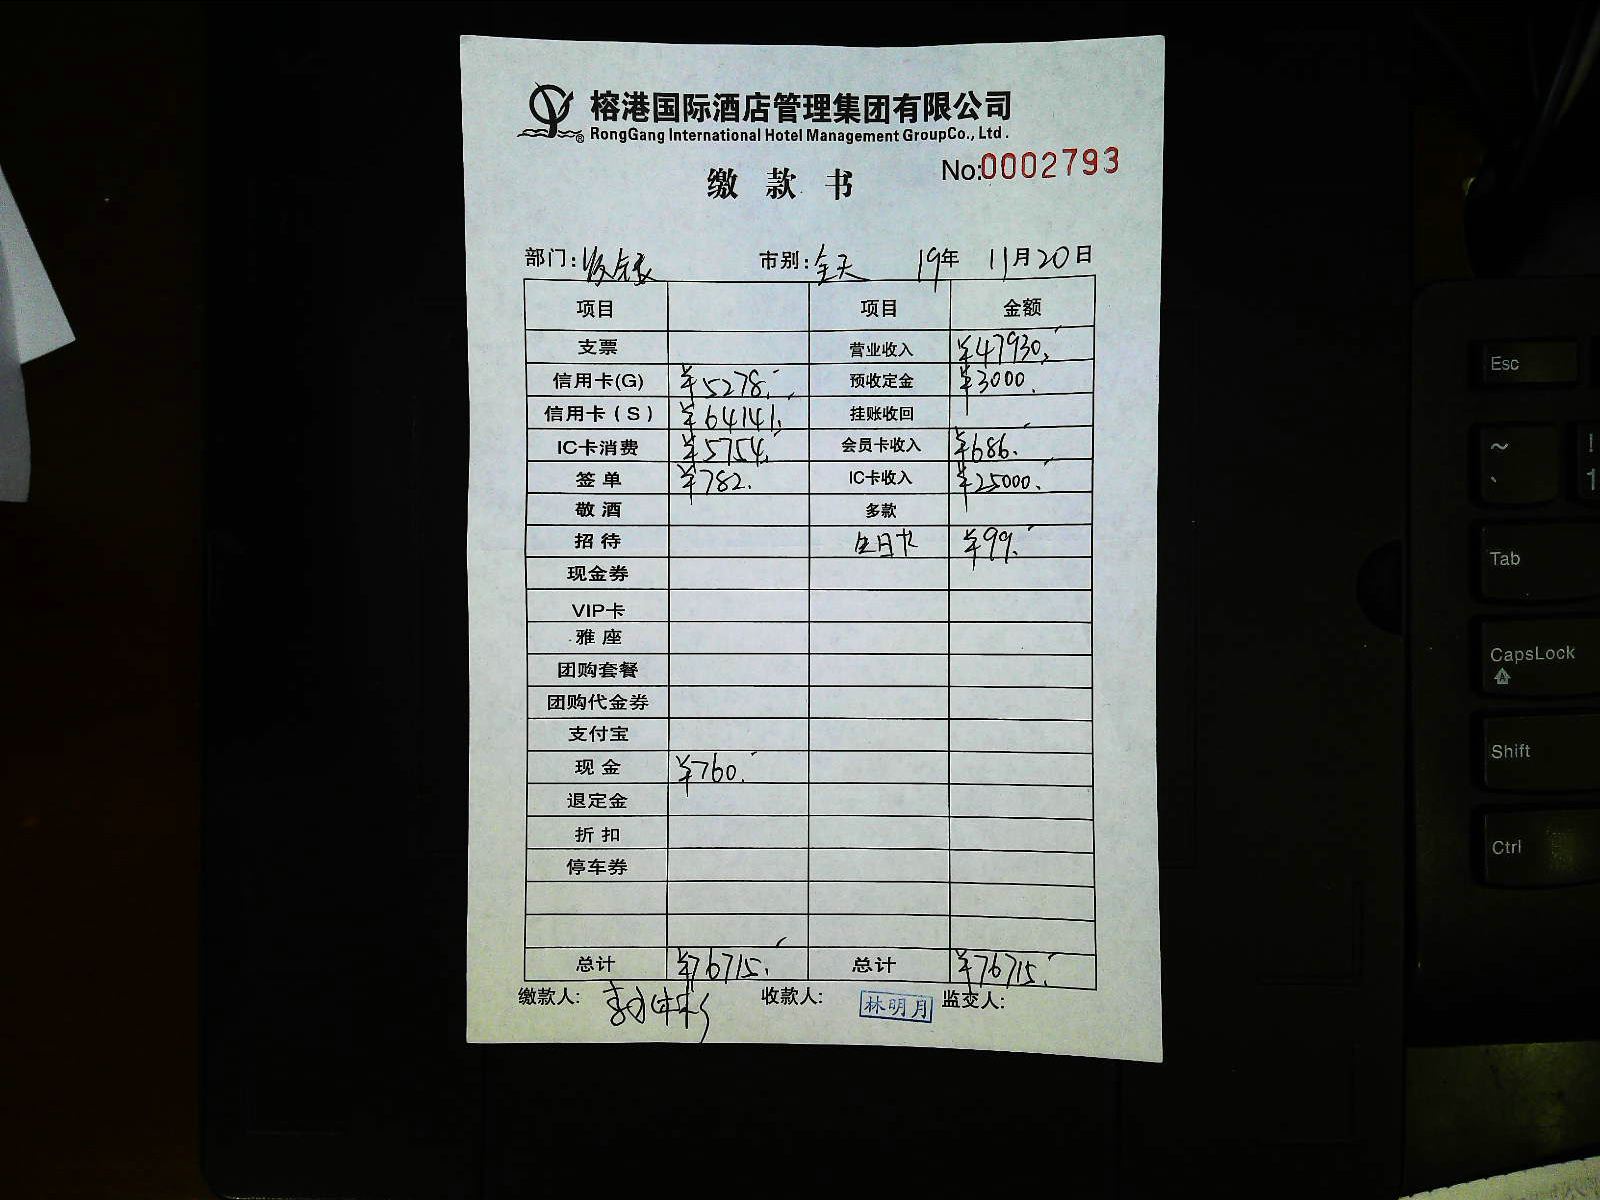 榕港国际酒店管理集团有限公司
® RongGang International Hotel Management GroupCo., Ltd.
No:0002793
缴 款 书
部门: 收银 市别: 全天 19年 11月20日
项目 项目 金额
支票 营业收入 ¥47930.
信用卡(G) ¥5278. 预收定金 ¥3000.
信用卡(S) ¥64141. 挂账收回
IC卡消费 ¥5754. 会员卡收入 ¥686.
签单 ¥782. IC卡收入 ¥25000.
敬酒 多款
招待 生日卡 ¥99.
现金券
VIP卡
雅座
团购套餐
团购代金券
支付宝
现金 ¥760.
退定金
折扣
停车券
总计 ¥76715. 总计 ¥76715.
缴款人: 收款人: 林明月 监交人:
Esc
~
!
` 1
Tab
CapsLock
A
Shift
Ctrl